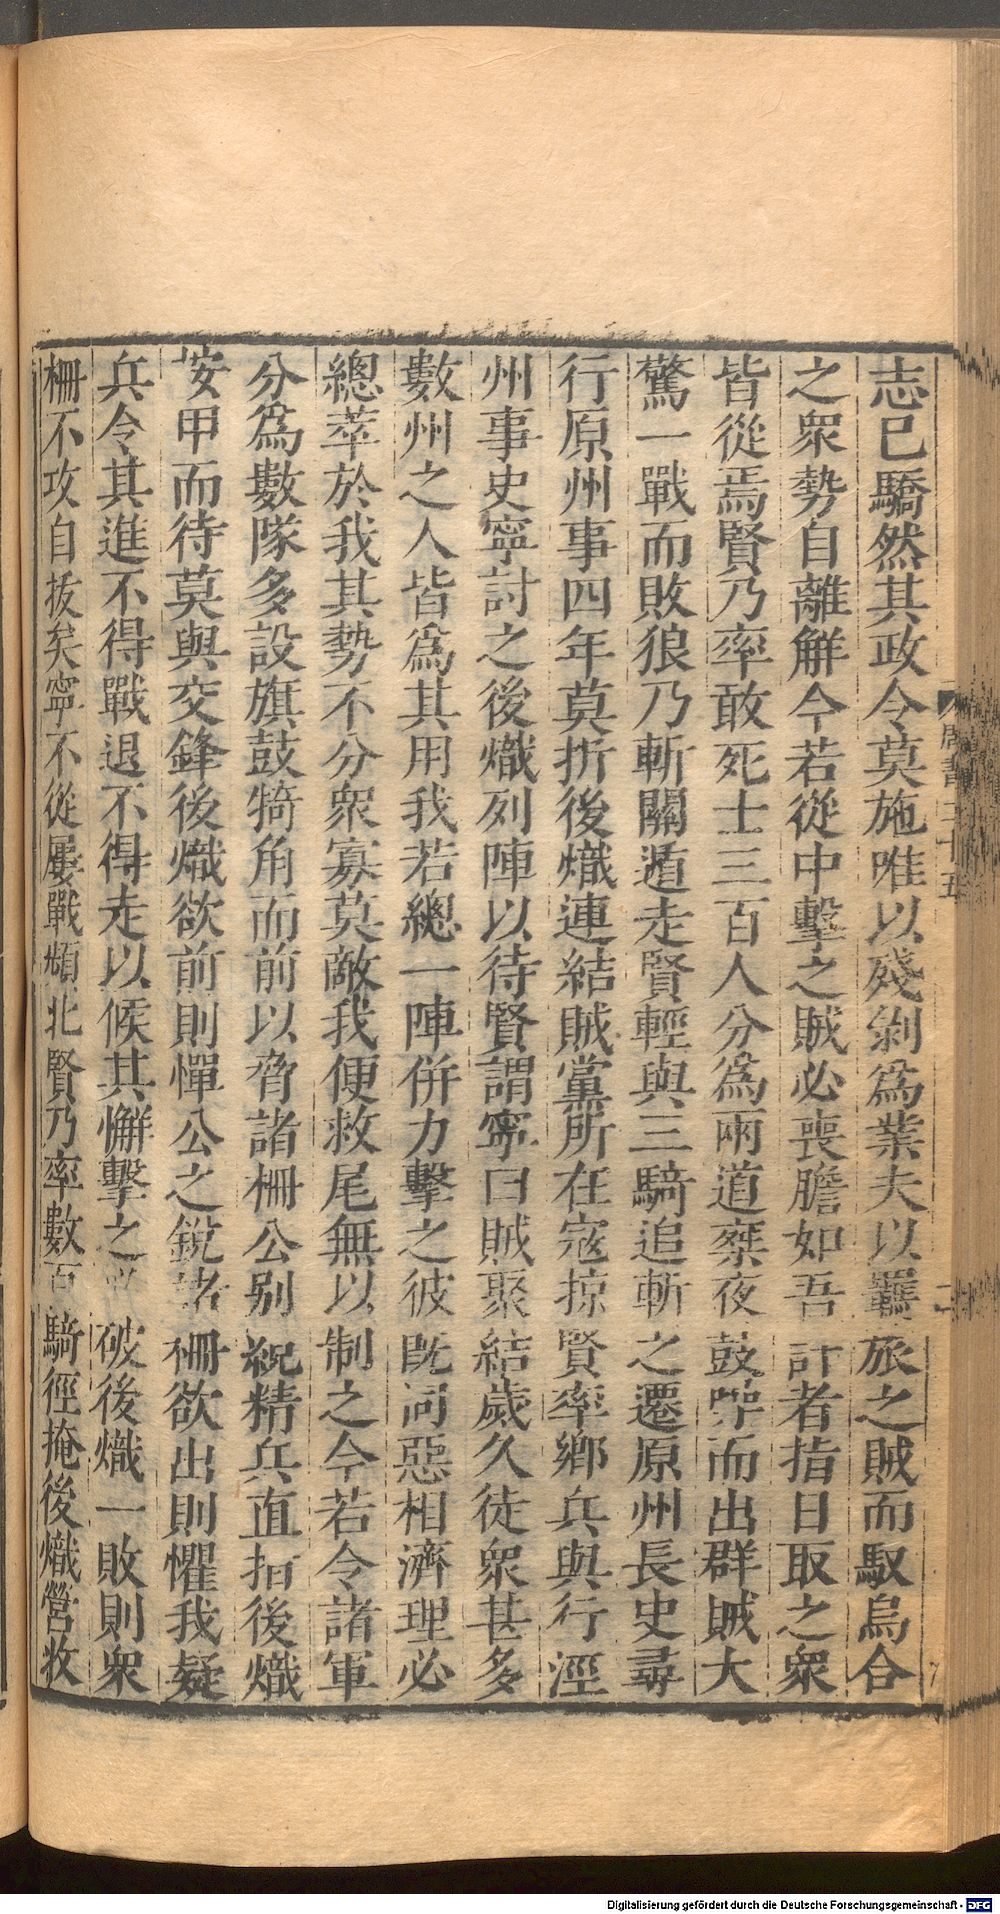 志已驕然其政令莫施唯以殘剝爲業夫以羈旅之賊而馭烏合
之衆勢自離解今若從中擊之賊必喪膽如吾計者指日取之衆
皆從焉賢乃率敢死士三百人分爲兩道乗夜鼓噪而出群賊大
驚一戰而敗狼乃斬關遁走賢輕與三騎追斬之遷原州長史尋
行原州事四年莫折後熾連結賊黨所在寇掠賢率鄉兵與行涇
州事史寧討之後熾列陣以待賢謂寧曰賊聚結歲久徒衆甚多
數州之人皆爲其用我若總一陣併力擊之彼既同惡相濟理必
總萃於我其勢不分衆寡莫敵我便救尾無以制之今若令諸軍
分爲數隊多設旗鼓犄角而前以脅諸柵公别統精兵直指後熾
按甲而待莫與交鋒後熾欲前則憚公之銳諸柵欲出則懼我疑
兵令其進不得戰退不得走以候其懈擊之必破後熾一敗則衆
柵不攻自拔矣寧不從屢戰頻北賢乃率數百騎徑掩後熾營收
周書二十五
Digitalisierung gefördert durch die Deutsche Forschungsgemeinschaft - DFG